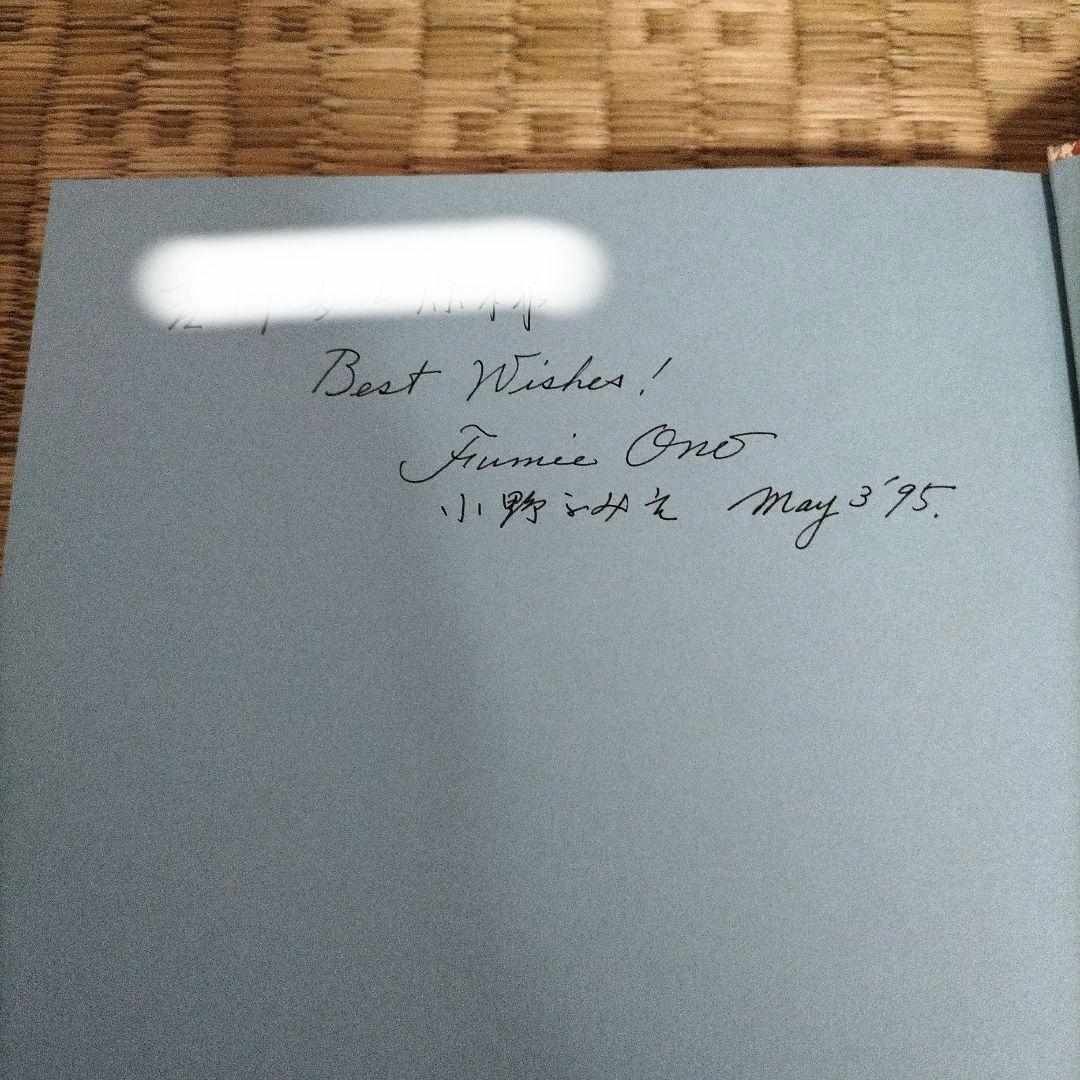 Best Wishes!
Fumie Ono
小野ふみえ May 3 '95.